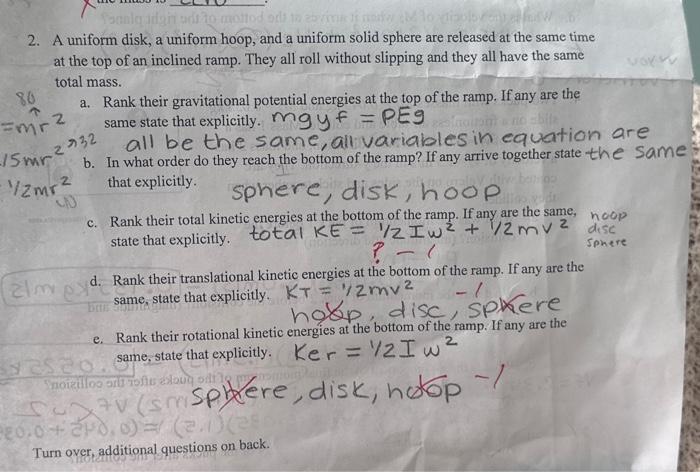 2. A uniform disk, a uniform hoop, and a uniform solid sphere are released at the same time
at the top of an inclined ramp. They all roll without slipping and they all have the same
total mass.
80
a. Rank their gravitational potential energies at the top of the ramp. If any are the
=mr²
same state that explicitly. mgyf = PEg
all be the same, all variables in equation are
32
.15mr²
b. In what order do they reach the bottom of the ramp? If any arrive together state the same
that explicitly.
1/2mr²
sphere, disk, hoop
c. Rank their total kinetic energies at the bottom of the ramp. If any are the same,
state that explicitly. total KE = 1/2Iw² + 1/2mv²
hoop
disc
sphere
? -1
d. Rank their translational kinetic energies at the bottom of the ramp. If any are the
same, state that explicitly. KT = 1/2mv²
-1
hoop, disc, sphere
e. Rank their rotational kinetic energies at the bottom of the ramp. If any are the
same, state that explicitly. Ker = 1/2Iw²
sphere, disk, hoop -1
Turn over, additional questions on back.